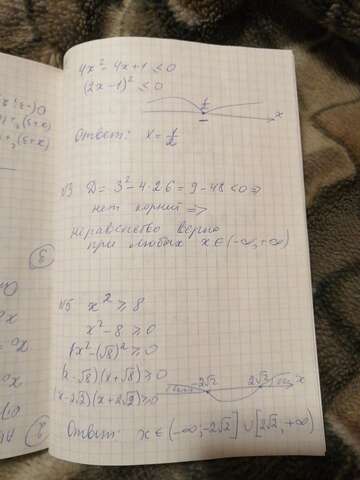 4x² - 4x + 1 ≤ 0
(2x - 1)² ≤ 0
1/2
x
Ответ: x = 1/2
№3 D = 3² - 4·2·6 = 9 - 48 < 0 ⇒
нет корней ⇒
неравенство верно
при любых x ∈ (-∞, +∞)
3
№5 x² ≥ 8
x² - 8 ≥ 0
x² - (√8)² ≥ 0
(x - √8)(x + √8) ≥ 0
(x - 2√3)(x + 2√2) ≥ 0
2√2 2√3 x
2
Ответ: x ∈ (-∞, -2√2] ∪ [2√2, +∞)